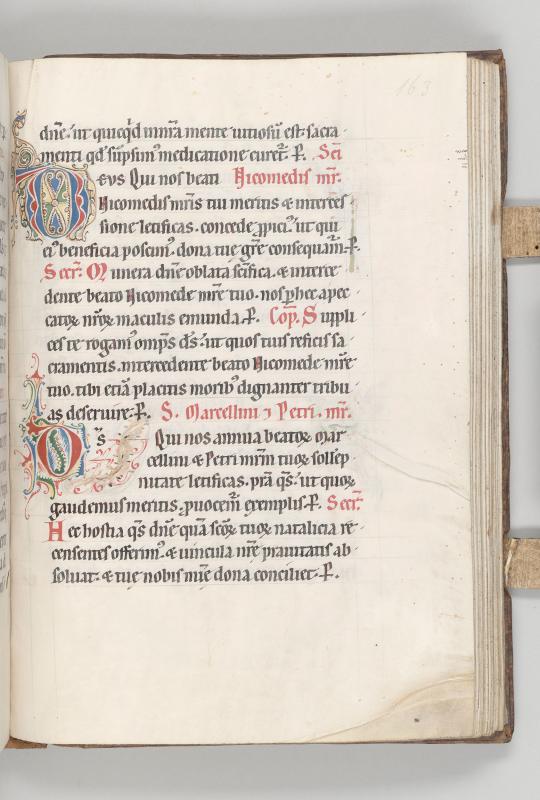 163
dñe· ut quicq̇d in nr̄a mente uitiosū est· sacra
menti qd̄ sūpsim᾽ medicatione curet᷑· P̄. Scī
Deus Qui nos beati Nicomedis mr̄.
Nicomedis mr̄is tui meritis & interces
sione letificas· concede ꝓpici᾽· ut qui
ei᾽ beneficia poscim᾽· dona tue gr̄e consequam̄· P̄.
Secr̄. Munera dñe oblata sc̄ifica· & interce
dente beato Nicomede mr̄e tuo· nos ꝑ hec a pec
catoꝝ nr̄oꝝ maculis emunda· P̄. Cōp̄. Suppli
ces te rogam᾽ omp̄s ds̄· ut quos tuis reficis sa
cramentis· intercedente beato Nicomede mr̄e
tuo· tibi etiā placitis morib᾽ dignanter tribu
as deseruire· P̄. S. Marcellini ⁊ Petri· mr̄.
Ds̄ Qui nos annua beatoꝝ Mar
cellini & Petri mr̄m tuoꝝ sollep
nitate letificas· p̄ra qs̄· ut quoꝝ
gaudemus meritis· ꝓuocem̄ exemplis· P̄. Secr̄.
Hec hostia qs̄ dñe quā sc̄oꝝ tuoꝝ natalicia re
censentes offerim᾽· & uincula nr̄e prauitatis ab
soluat· & tue nobis mīe dona conciliet· P̄.